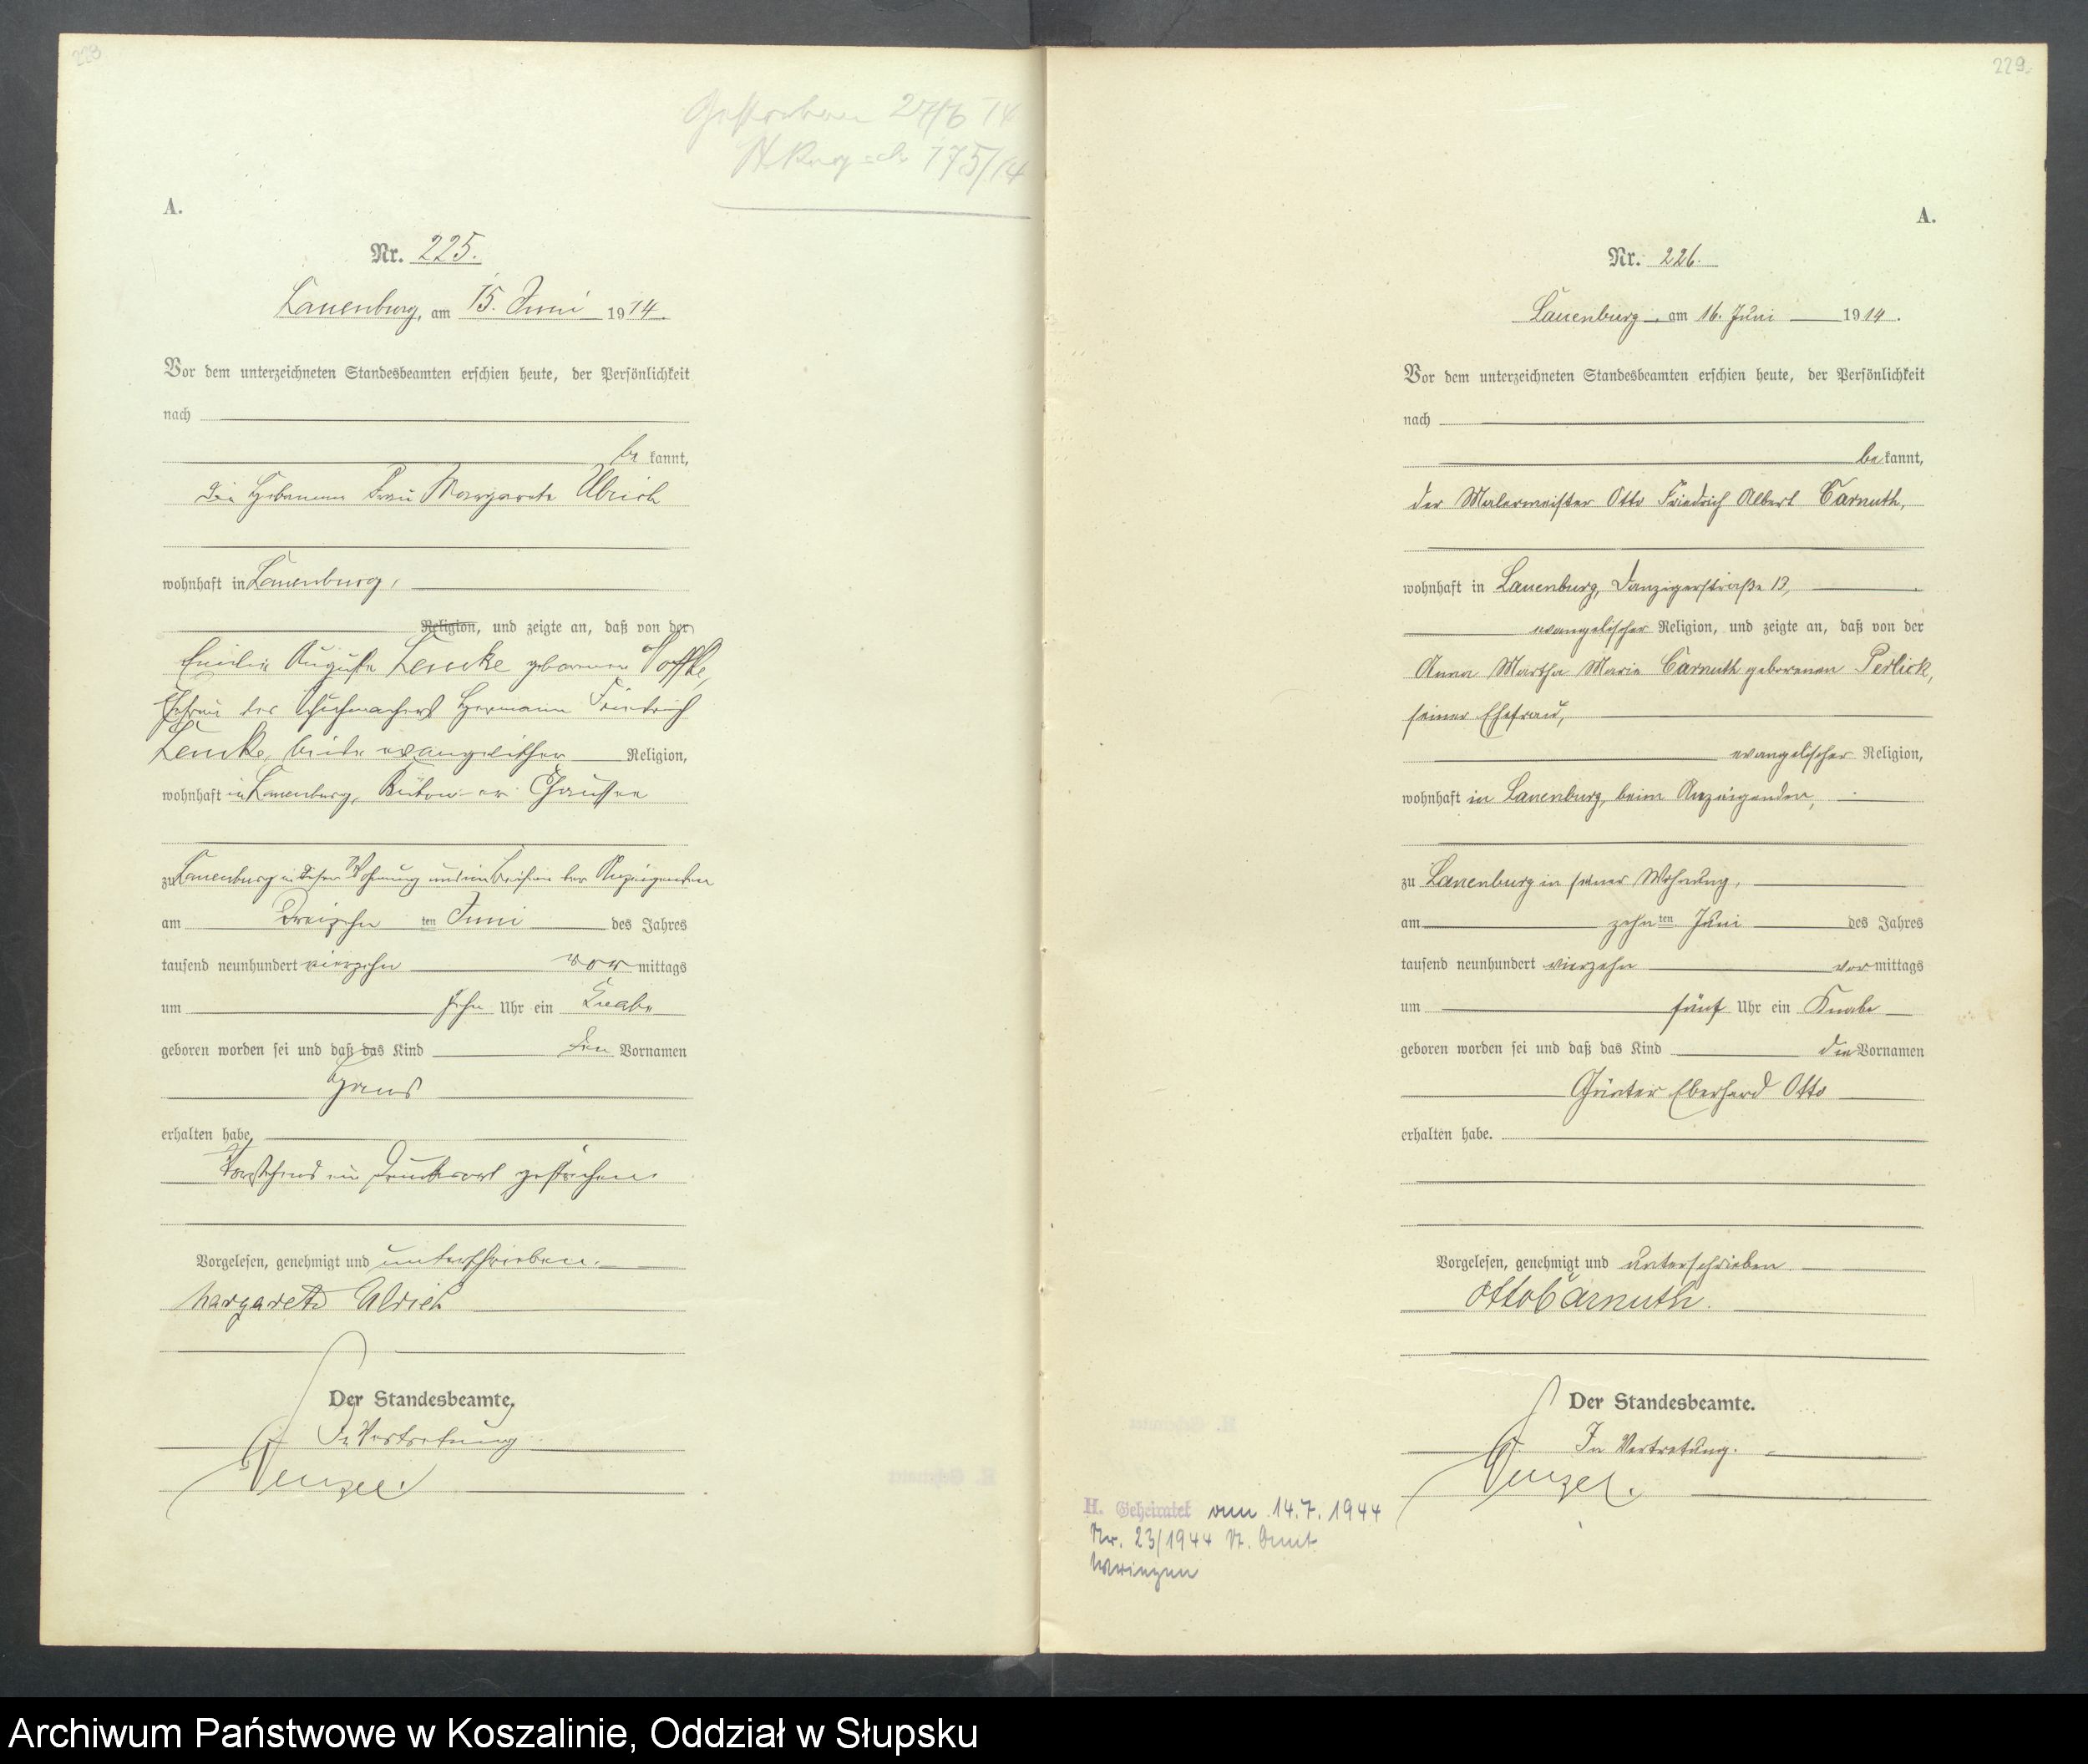 228
Gestorben 27/6 14
175/14
A.
Nr. 225.
Lauenburg, am 15. Juni 1914.
Vor dem unterzeichneten Standesbeamten erschien heute, der Persönlichkeit
nach
be kannt,
die Hebamme Frau Margarete Ulrich
wohnhaft in Lauenburg,
Religion, und zeigte an, daß von der
Emilie Auguste Lemke geborenen
Ehefrau des Schuhmachers Hermann Friedrich
Lemke, beide evangelischer Religion,
wohnhaft in Lauenburg, Bütow-er Chaussee
zu Lauenburg in dieser Wohnung und im Beisein der Anzeigenden
am dreizehn ten Juni des Jahres
tausend neunhundert vierzehn vor mittags
um zehn Uhr ein Knabe
geboren worden sei und daß das Kind den Vornamen
Hans
erhalten habe
Vorstehend ein Druckwort gestrichen.
Vorgelesen, genehmigt und unterschrieben.
Margarete Ulrich
Der Standesbeamte.
In Vertretung
Wenzel.
229.
A.
Nr. 226.
Lauenburg, am 16. Juni 1914.
Vor dem unterzeichneten Standesbeamten erschien heute, der Persönlichkeit
nach
be kannt,
der Malermeister Otto Friedrich Albert Carnuth,
wohnhaft in Lauenburg, Danzigerstraße 13,
evangelischer Religion, und zeigte an, daß von der
Anna Martha Marie Carnuth geborenen Perlick,
seiner Ehefrau,
evangelischer Religion,
wohnhaft in Lauenburg, beim Anzeigenden,
zu Lauenburg in seiner Wohnung,
am zehn ten Juni des Jahres
tausend neunhundert vierzehn vor mittags
um fünf Uhr ein Knabe
geboren worden sei und daß das Kind die Vornamen
Günter Eberhard Otto
erhalten habe.
Vorgelesen, genehmigt und unterschrieben
Otto Carnuth.
Der Standesbeamte.
In Vertretung.
Wenzel.
H. Geheiratet am 14.7.1944
Nr. 23/1944 St. Amt
Archiwum Państwowe w Koszalinie, Oddział w Słupsku